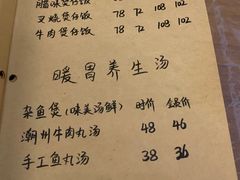 腊味煲仔饭 78 72 108 102
叉烧煲仔饭 78 72 108 102
牛肉煲仔饭 78 72 108 102
暖胃养生汤
杂鱼煲(味美汤鲜) 时价 会员价
潮州牛肉丸汤 48 46
手工鱼丸汤 38 36